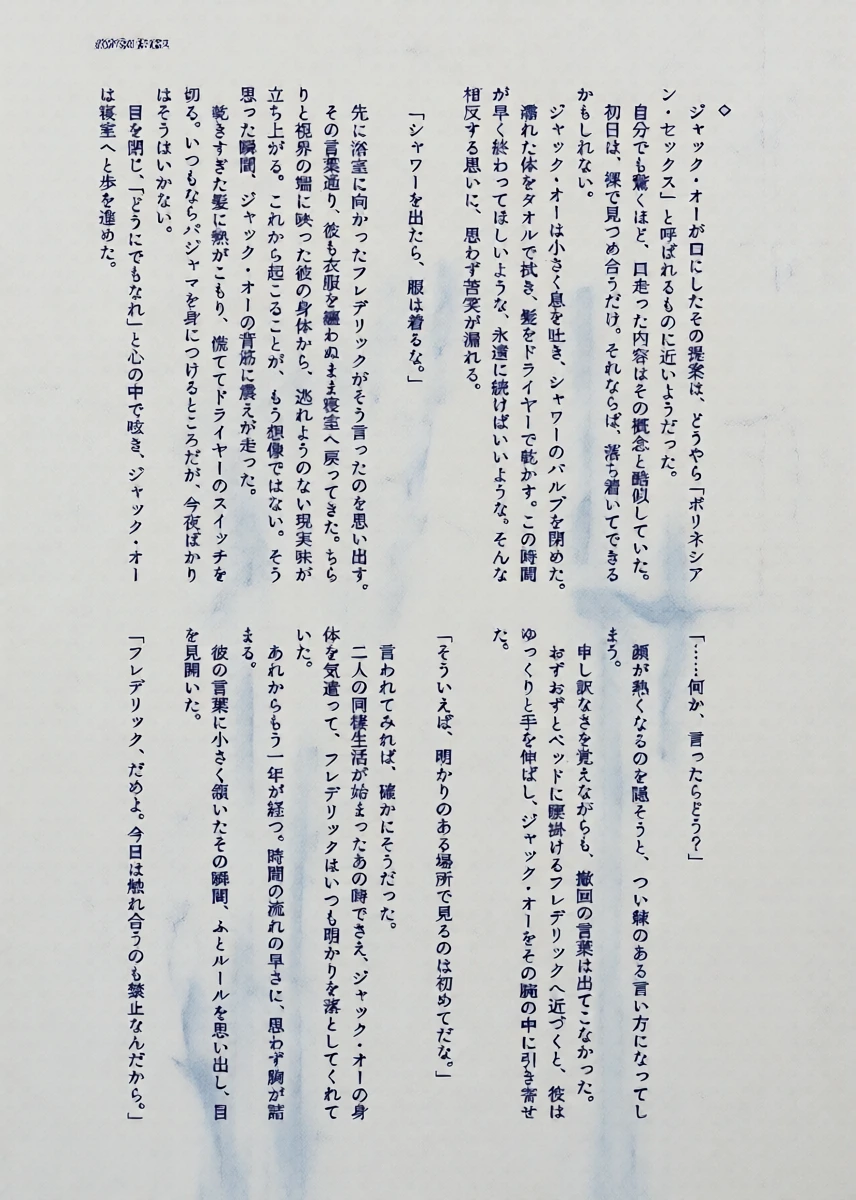 ◇
　ジャック・オーが口にしたその提案は、どうやら「ポリネシア
ン・セックス」と呼ばれるものに近いようだった。
　自分でも驚くほど、口走った内容はその概念と酷似していた。
　初日は、裸で見つめ合うだけ。それならば、落ち着いてできる
かもしれない。
　ジャック・オーは小さく息を吐き、シャワーのバルブを閉めた。
　濡れた体をタオルで拭き、髪をドライヤーで乾かす。この時間
が早く終わってほしいような、永遠に続けばいいような。そんな
相反する思いに、思わず苦笑が漏れる。
「シャワーを出たら、服は着るな。」
　先に浴室に向かったフレデリックがそう言ったのを思い出す。
　その言葉通り、彼も衣服を纏わぬまま寝室へ戻ってきた。ちら
りと視界の端に映った彼の身体から、逃れようのない現実味が
立ち上がる。これから起こることが、もう想像ではない。そう
思った瞬間、ジャック・オーの背筋に震えが走った。
　乾きすぎた髪に熱がこもり、慌ててドライヤーのスイッチを
切る。いつもならパジャマを身につけるところだが、今夜ばかり
はそうはいかない。
　目を閉じ、「どうにでもなれ」と心の中で呟き、ジャック・オー
は寝室へと歩を進めた。
「……何か、言ったらどう？」
　顔が熱くなるのを隠そうと、つい棘のある言い方になってし
まう。
　申し訳なさを覚えながらも、撤回の言葉は出てこなかった。
　おずおずとベッドに腰掛けるフレデリックへ近づくと、彼は
ゆっくりと手を伸ばし、ジャック・オーをその腕の中に引き寄せ
た。
「そういえば、明かりのある場所で見るのは初めてだな。」
　言われてみれば、確かにそうだった。
　二人の同棲生活が始まったあの時でさえ、ジャック・オーの身
体を気遣って、フレデリックはいつも明かりを落としてくれて
いた。
　あれからもう一年が経つ。時間の流れの早さに、思わず胸が詰
まる。
　彼の言葉に小さく頷いたその瞬間、ふとルールを思い出し、目
を見開いた。
「フレデリック、だめよ。今日は触れ合うのも禁止なんだから。」